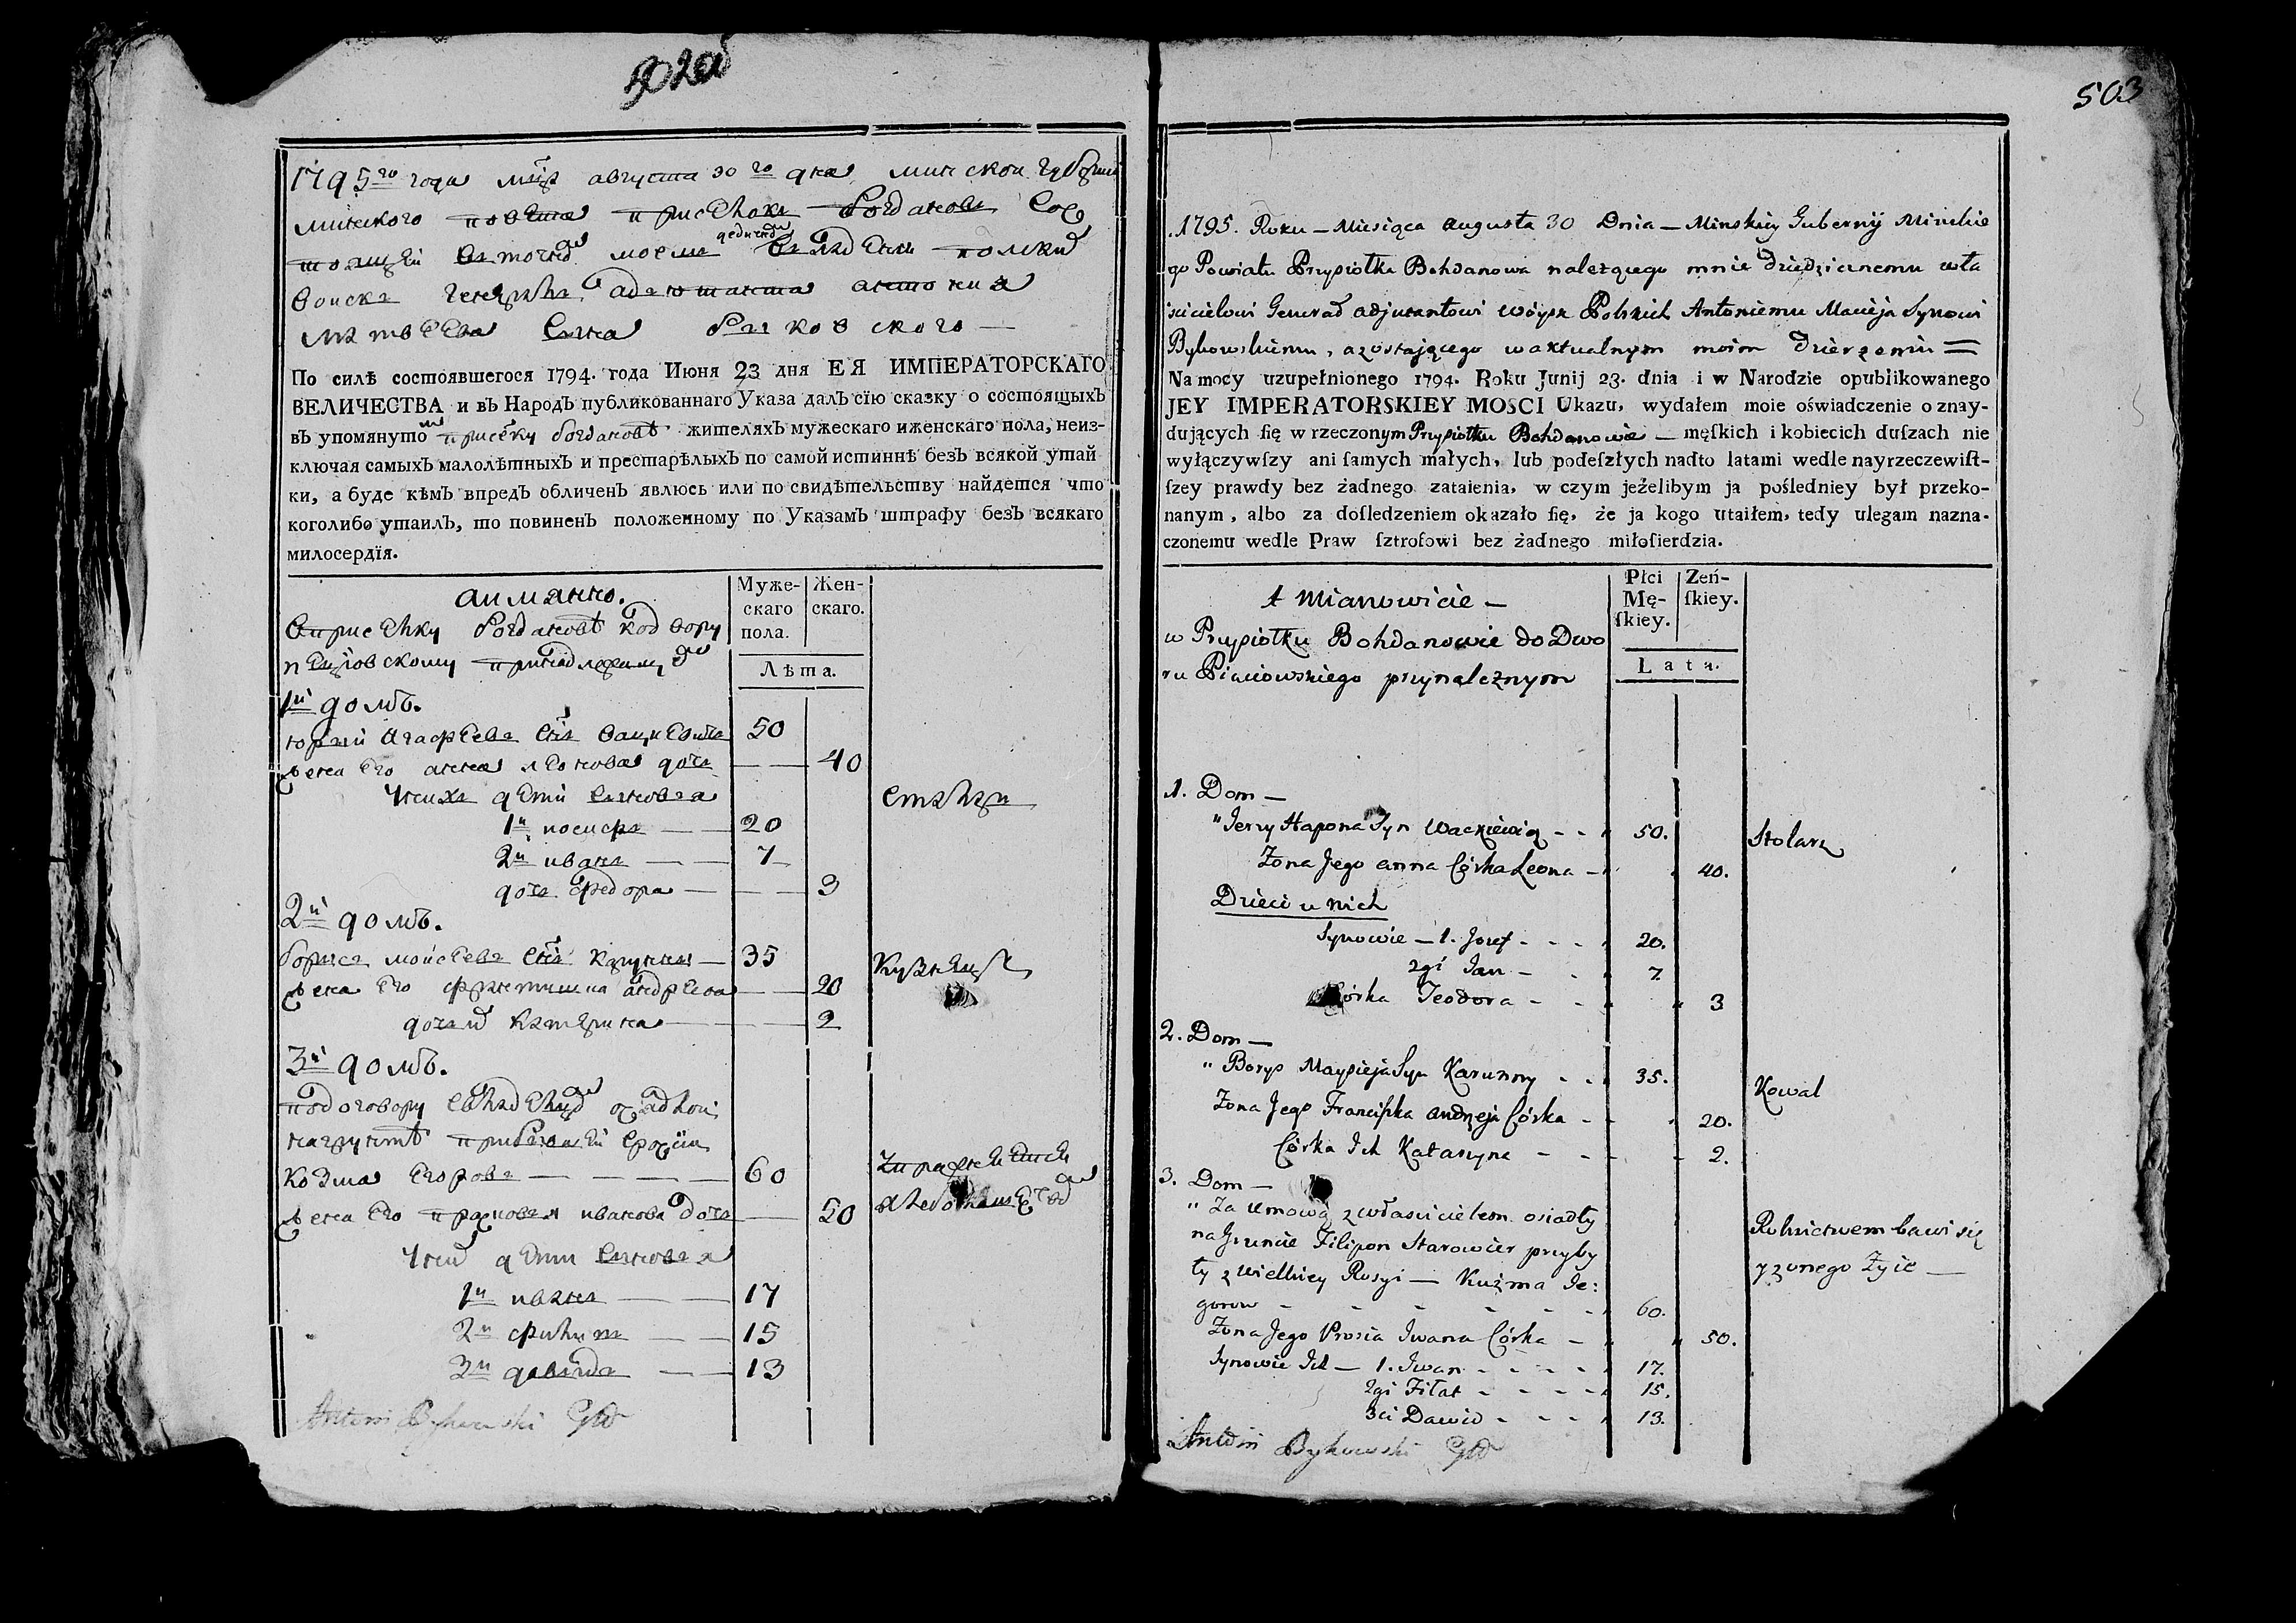 502об
1795го года мца августа 30го дня минской губернии
минского повета приселокъ богдановъ сос
тоящей въ точномъ моемъ дедичномъ владении полскихъ
войскъ генералъ адъютанта антония
матвеева сына быковского —
По силѣ состоявшегося 1794. года Июня 23 дня ЕЯ ИМПЕРАТОРСКАГО
ВЕЛИЧЕСТВА и въ Народъ публикованнаго Указа далъ сїю сказку о состоящыхъ
въ упомянутомъ приселку богдановѣ жителяхъ мужескаго иженскаго пола, неиз-
ключая самыхъ малолѣтныхъ и престарѣлыхъ по самой истиннѣ безъ всякой утай
ки, а буде кѣмъ впредъ обличенъ явлюсь или по свидѣтельству найдется что
коголибо утаилъ, то повиненъ положенному по Указамъ штрафу безъ всякаго
милосердїя.
аимянно.
Муже-
скаго
пола.
Жен-
скаго.
Лѣта.
Въприселку богдановѣ кодвору
принадлежащемъ
1й домъ.
юрий агафеевъ снъ вацкевичъ 50
жена его анна леонова дочь — 40
Унихъ дети сыновья столяръ
1й иосифъ — 20
2й иванъ — 7
дочь федора — 3
2й домъ.
борисъ мойсеевъ снъ карунны — 35 кузнецъ
жена его францишка андреева — 20
дочь ихъ катерина — 2
3й домъ.
подоговору свладелцемъ оседлой
нагрунтѣ
козма егоровъ — 60
жена его иванова дочь — 50
Унихъ дети сыновья
1й иванъ — 17
2й филатъ — 15
3й давыдъ — 13
Antoni Bykowski
503
1795. Roku — Miesiąca Augusta 30 Dnia — Minskiey Gubernij Minskie
go Powiatu Przysiołka Bohdanowa należącego mnie dziedzicznemu wła
scicielowi Generał adjutantowi Woysk Polskich Antoniemu Macieja Synowi
Bykowskiemu, a zostającego w aktualnym moim dzierżeniu =
Na mocy uzupełnionego 1794. Roku Junij 23. dnia i w Narodzie opublikowanego
JEY IMPERATORSKIEY MOSCI Ukazu, wydałem moie oświadczenie o znay-
dujących ſię w rzeczonym Przysiołku Bohdanowie — męſkich i kobiecich duſzach nie
wyłączywſzy ani ſamych małych, lub podeſzłych nadto latami wedle nayrzeczewiſt-
ſzey prawdy bez żadnego zataienia, w czym jeżelibym ja pośledniey był przeko-
nanym, albo za doſledzeniem okazało ſię, że ja kogo utaiłem, tedy ulegam nazna-
czonemu wedle Praw ſztrofowi bez żadnego miłoſierdzia.
A mianowicie —
Płci
Mę-
ſkiey.
Zeń-
ſkiey.
Lata.
w Przysiołku Bohdanowie do Dwo
ru przynależnym
1. Dom —
" Jerzy Hapona Syn Wackiewicz - - 50. Stolarz
Żona Jego Anna Córka Leona - 40.
Dzieci u nich
Synowie — 1. Jozef - - - 20.
2gi Jan - - 7.
Córka Teodora - - 3
2. Dom —
" Borys Moysieja Syn Karunny - - 35. Kowal
Zona Jego Franciſzka Andrzeja Córka - 20.
Córka Ich Katarzyna - - 2.
3. Dom —
" Za umową z właścicielem osiadły
na Gruncie Filipon Starowier przyby
ły z wielkiey Rosyi — Kuźma Je:
gorow - - - - - - 60.
Rolnictwem bawi się
y z onego żyie —
Zona Jego Prosia Iwana Córka - 50.
Synowie Ich — 1. Iwan - - - - 17.
2gi Filat - - - - 15.
3ci Dawid - - - 13.
Antoni Bykowski